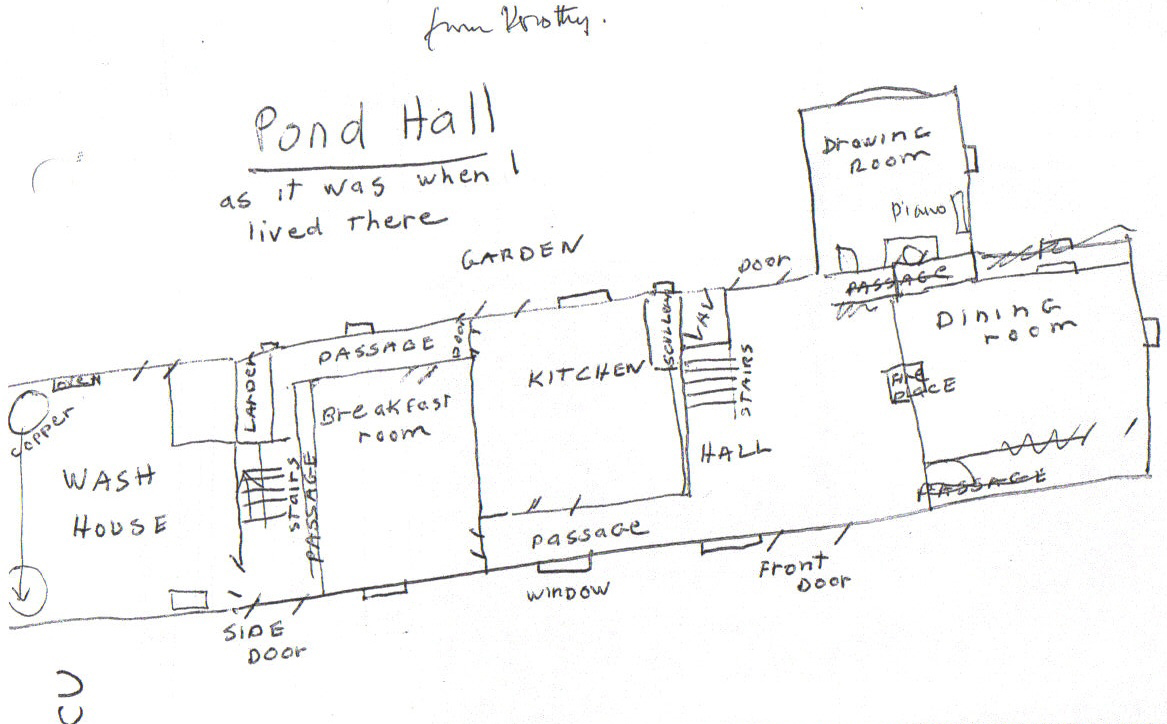 from Dorothy.
Pond Hall
as it was when I
lived There
GARDEN
Drawing
Room
Piano
Door
PASSAGE
Dining
room
Fire
PLACE
PASSAGE
SCULLERY
LAV
STAIRS
HALL
KITCHEN
DOOR
PASSAGE
Breakfast
room
LARDER
STairs
PASSAGE
OVEN
COPPER
WASH
HOUSE
Passage
WINDOW
Front
DOOR
SIDE
DOOR